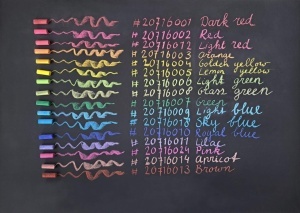 # 20716001 Dark red
# 20716002 Red
# 20716012 Light red
# 20716003 Orange
# 20716004 Golden yellow
# 20716005 Lemon yellow
# 20716006 Light green
# 20716008 Glass green
# 20716007 Green
# 20716009 Light blue
# 20716018 Sky blue
# 20716010 Royal blue
# 20716011 Lilac
# 20716024 Pink
# 20716014 Apricot
# 20716013 Brown